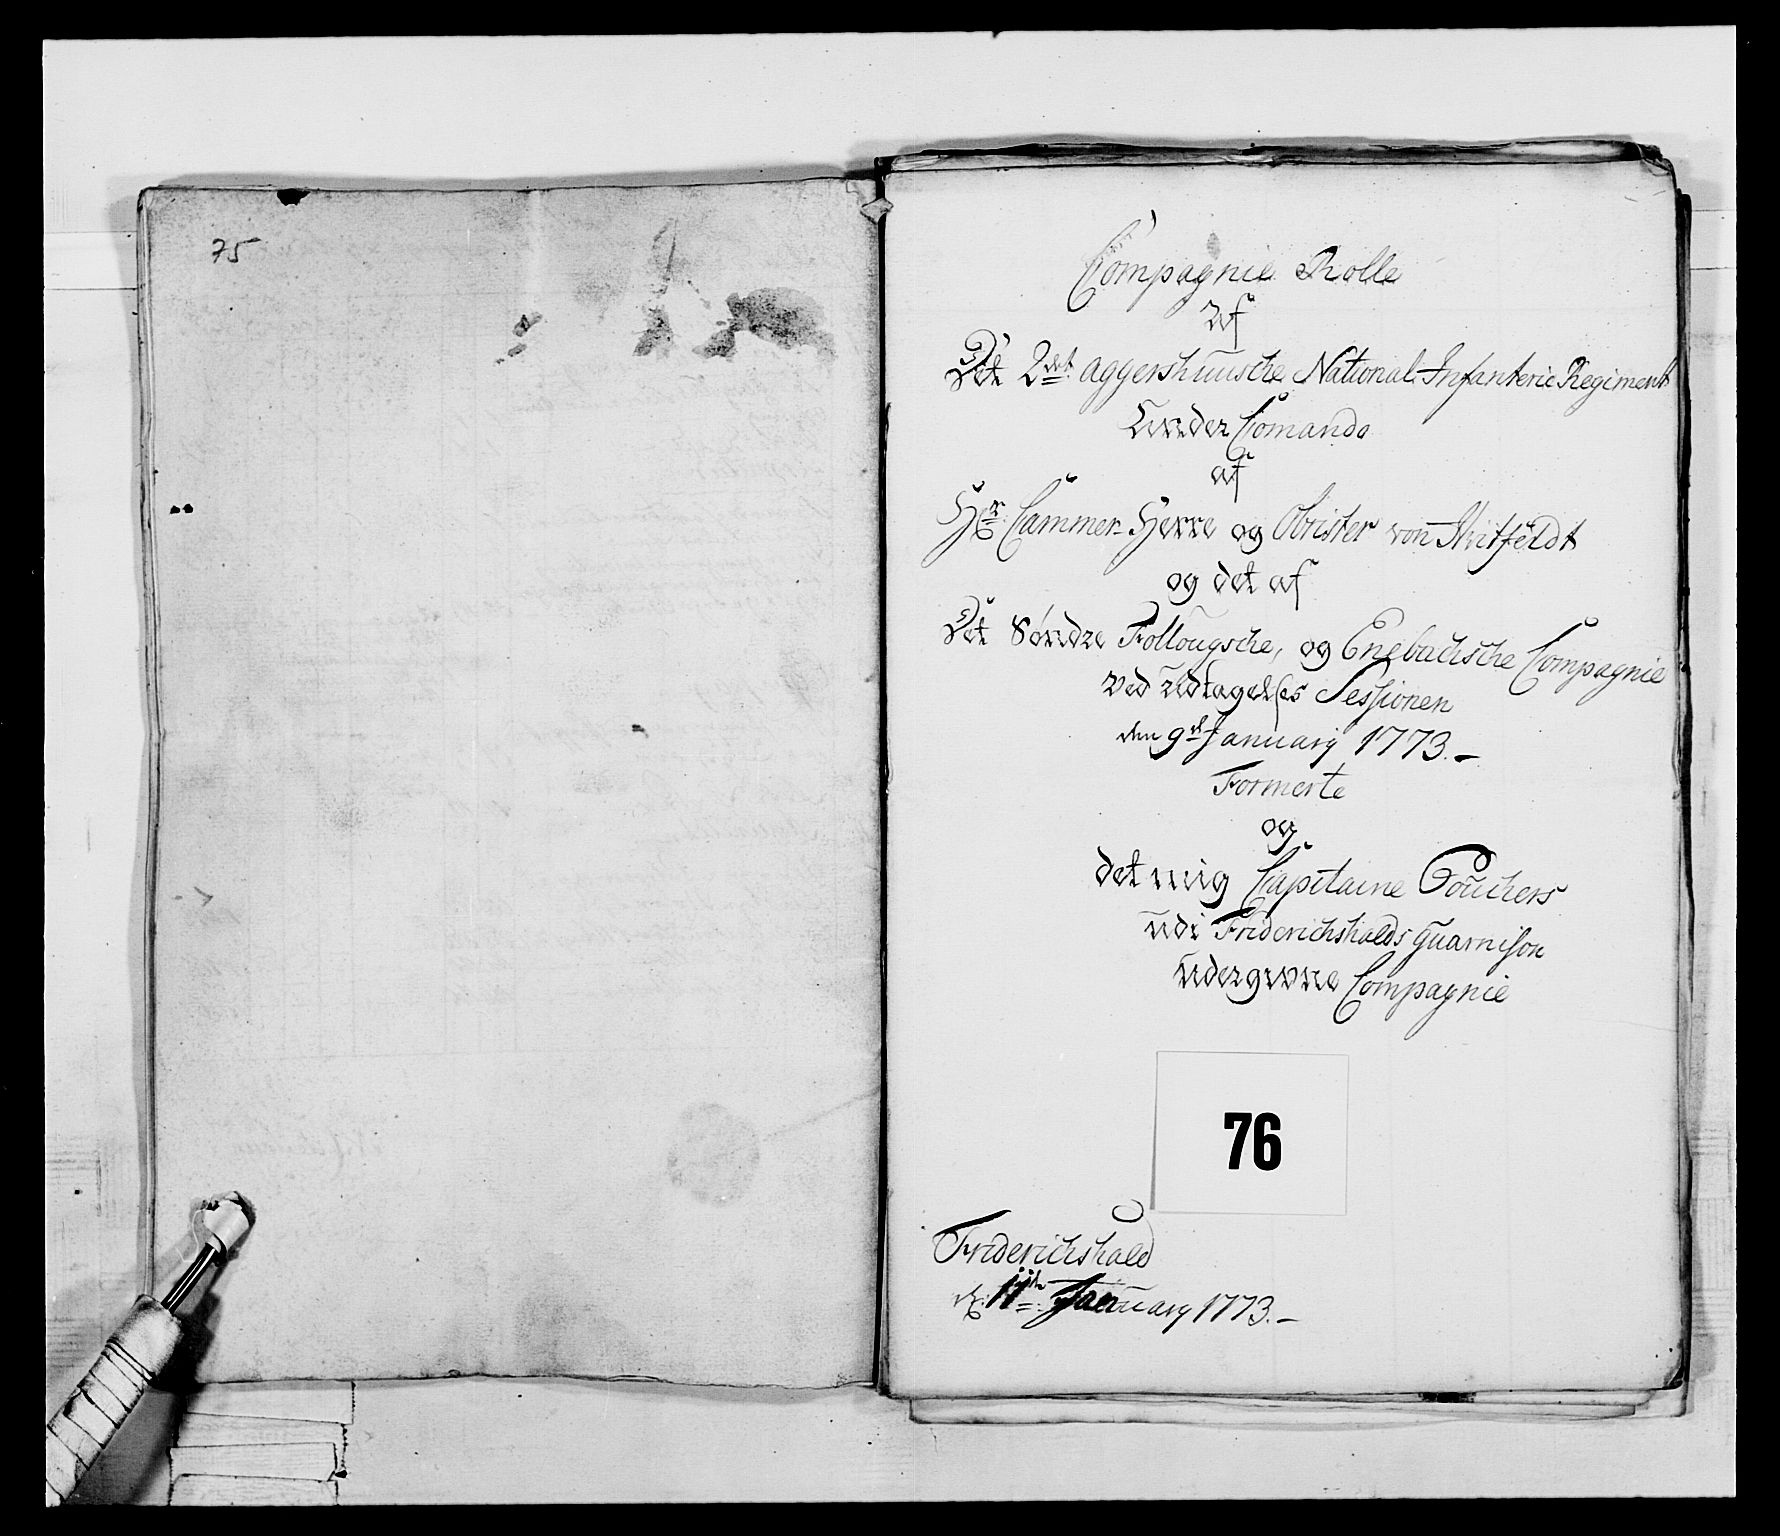 75
Compagnie Rolle
Af
Det 2det aggershuusche National Infanterie Regiment
Under Comando
af
Hr Cammer-Herre og Obrister von Hvitfeldt
og det af
Det Søndre Follougsche, og Enebachsche Compagnie
ved udtagelses Sessionen
den 9de January 1773.-
Formerte
og
det mig Capitaine Couchers
udi Friderichshalds Guarnison
undergivne Compagnie
76
Friderichshald
d: 11te January 1773.-